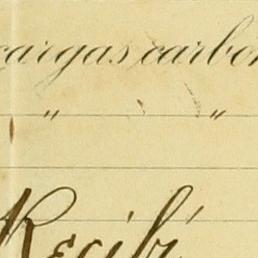 cargas carbon
" "
Recibí